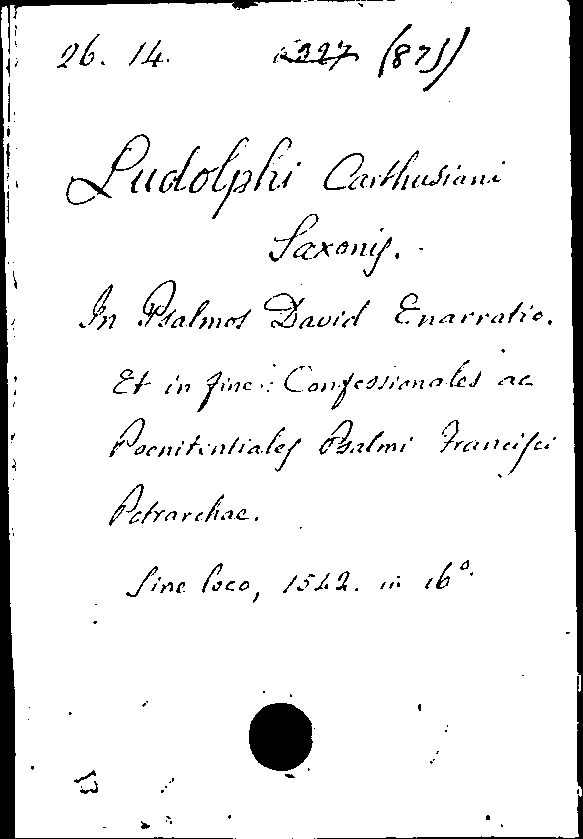 26. 14. (875)
Ludolphi Carthusiani
Saxonis.
In Psalmos David Enarratio.
Et in fine: Confessionales ac
Poenitentiales Psalmi Francisci
Petrarchae.
Sine loco, 1542. in 16°.